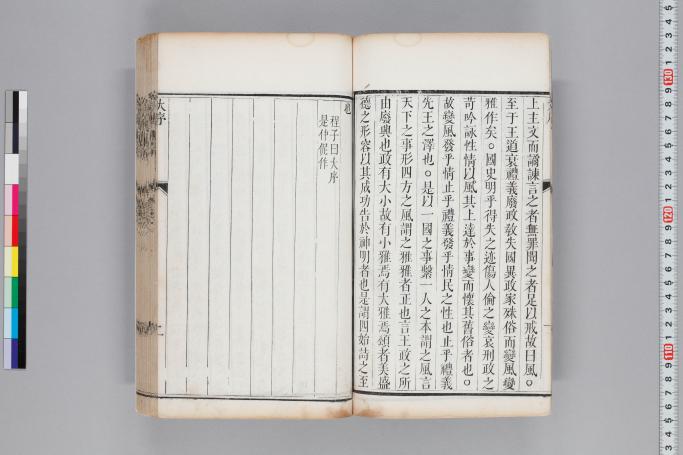 上主文而譎諫言之者無罪聞之者足以戒故曰風○
至于王道衰禮義廢政教失國異政家殊俗而變風變
雅作矣○國史明乎得失之迹傷人倫之變哀刑政之
苛吟詠性情以風其上達於事變而懷其舊俗者也○
故變風發乎情止乎禮義發乎情民之性也止乎禮義
先王之澤也○是以一國之事繫一人之本謂之風言
天下之事形四方之風謂之雅雅者正也言王政之所
由廢興也政有大小故有小雅焉有大雅焉頌者美盛
德之形容以其成功告於神明者也是謂四始詩之至
也
程子曰大序
是仲尼作
大序
二